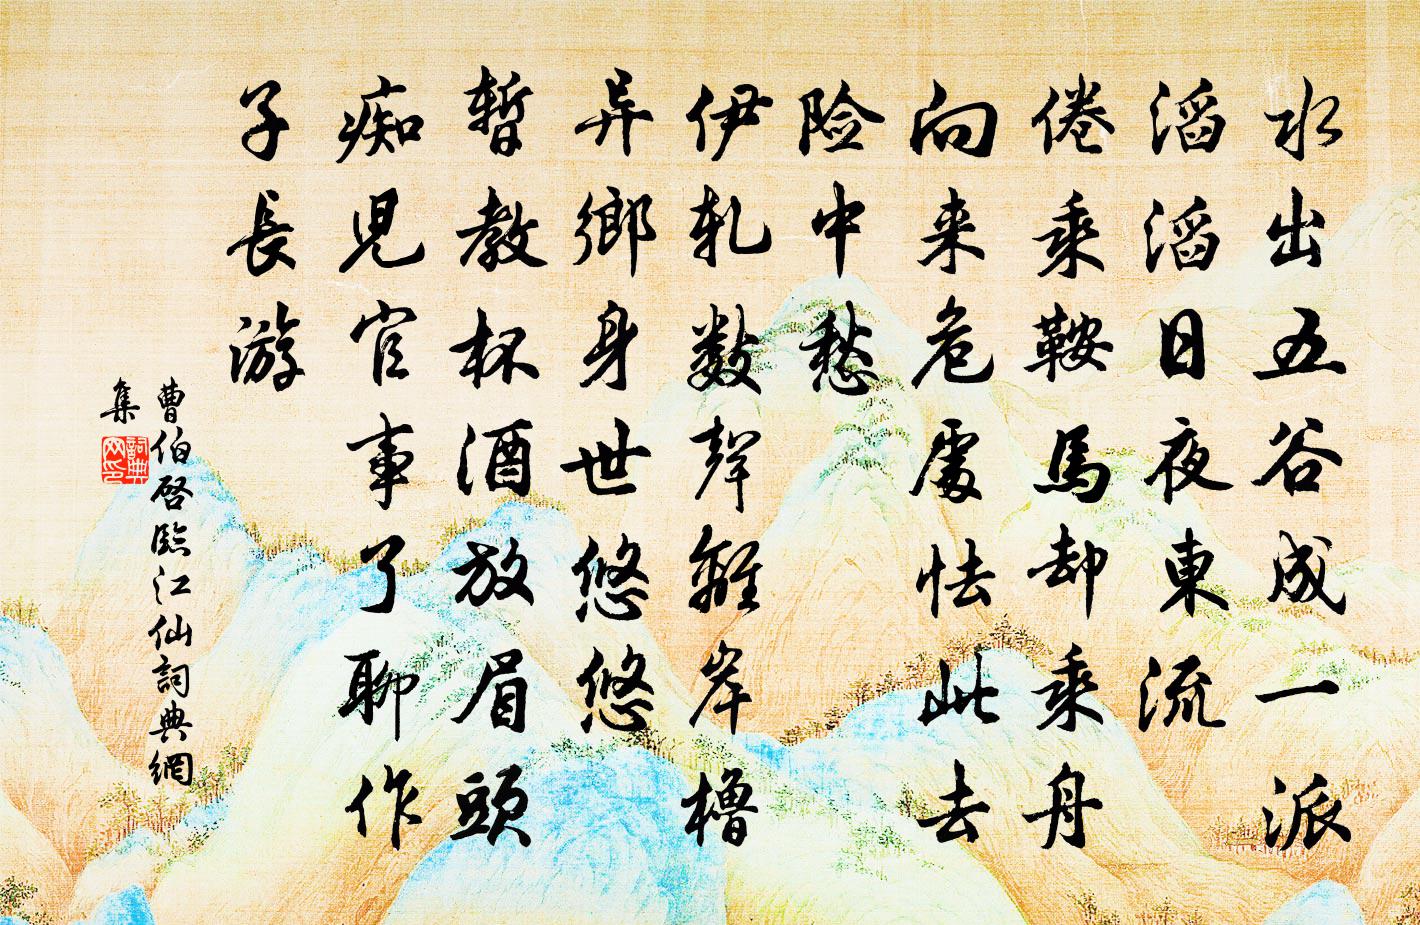 水出五谷成一派
滔滔日夜東流
倦乘鞍馬却乘舟
向来危處怯此去
险中愁
伊軋數聲離岸櫓
异鄉身世悠悠
暫教杯酒放眉頭
痴児官事了聊作
子長游
曹伯啓臨江仙詞典網
集
詞典
网印